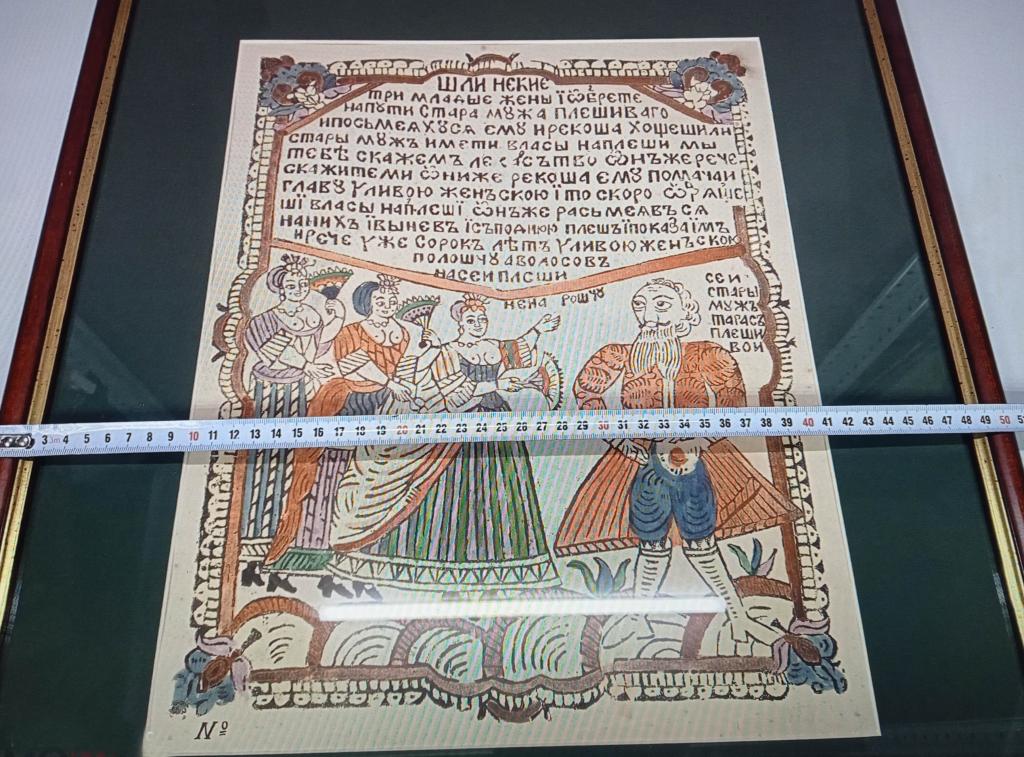 ШЛИ НЕКИЕ
ТРИ МЛАДЫЕ ЖЕНЫ Ї ѾБРЕТЕ
НАПУТИ СТАРА МУЖА ПЛЕШИВАГО
ИПОСЬМЕЯХУСЯ ЕМУ ИРЕКОША ХОЩЕШИЛИ
СТАРЫ МУЖЪ ИМЕТИ ВЛАСЫ НАПЛЕШИ МЫ
ТЕБѢ СКАЖЕМЪ ѾНЪЖЕРЕЧЕ
СКАЖИТЕМИ ѾНИЖЕ РЕКОША ЕМУ ПОМАЧАИ
ГЛАВУ УЛИВОЮ ЖЕНЪСКОЮ Ї ТО СКОРО
ШЇ ВЛАСЫ НАПЛЕШЇ ѾНЪЖЕ РАСЬМЕЯВЪСЯ
НАНИХЪ ЇВЫНЕВЪ ПЛЕШЪ ЇПОКАЗА ЇМЪ
ИРЕЧЕ УЖЕ СОРОКЪ ЛѢТЪ УЛИВОЮЖЕНЪСКОЮ
ПОЛОЩУ АВОЛОСОВЪ
НАСЕИ ПЛЕШИ
НЕНА РОЩУ
СЕИ
СТАРЫ
МУЖЪ
ТАРАСЪ
ПЛЕШИ
ВОИ
3 4 5 6 7 8 9 10 11 12 13 14 15 16 17 18 19 20 21 22 23 24 25 26 27 28 29 30 31 32 33 34 35 36 37 38 39 40 41 42 43 44 45 46 47 48 49 50
№